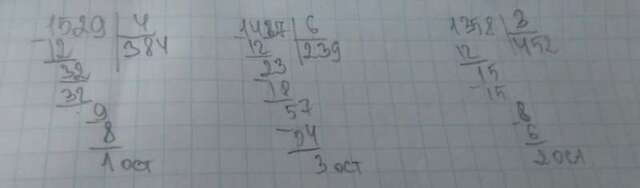 1529 | 4
- 12 | 384
32
32
9
8
1 ост
1437 | 6
- 12 | 239
23
- 18
57
- 54
3 ост
1358 | 3
12 | 452
15
- 15
8
- 6
2 ост